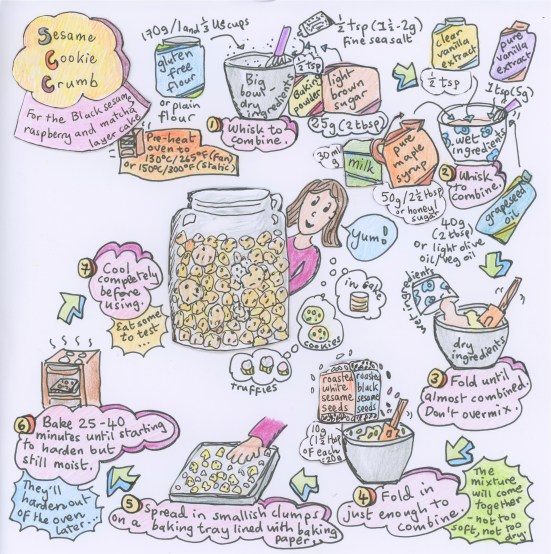 Sesame
Cookie
Crumb
For the Black sesame
raspberry and matcha
layer cake
170g/1 and 1/3 US cups
gluten
free
flour
or plain
flour
Big
bowl
dry
ingredients
1/2 tsp
baking
powder
1/2 tsp (1 1/2-2g)
fine sea salt
light
brown
sugar
25g (2 tbsp)
1 Whisk to
combine.
Pre-heat
oven to
130°C/265°F (Fan)
or 150°C/300°F (Static)
clear
vanilla
extract
1/2 tsp
pure
vanilla
extract
1 tsp (5g)
wet
ingredients
30ml/g
milk
pure
maple
syrup
50g/2 1/2 tbsp
or honey/
sugar
2 Whisk
to
combine.
grapeseed
oil
40g
(2 tbsp)
or light olive
oil/veg oil
wet ingredients
dry
ingredients
3 Fold until
almost combined.
Don't overmix.
roasted
white
sesame
seeds
roasted
black
sesame
seeds
10g
(1 1/2 tbsp)
of each
=20g
4 Fold in
just enough to
combine.
The
mixture
will come
together
not too
soft, not too
dry.
5 Spread in smallish clumps
on a baking tray lined with baking
paper.
6 Bake 25-40
minutes until starting
to harden but
still moist.
They'll
harden out
of the oven
later...
7 Cool
completely
before
using.
Eat some
to test...
Yum!
in cake
cookies
truffles